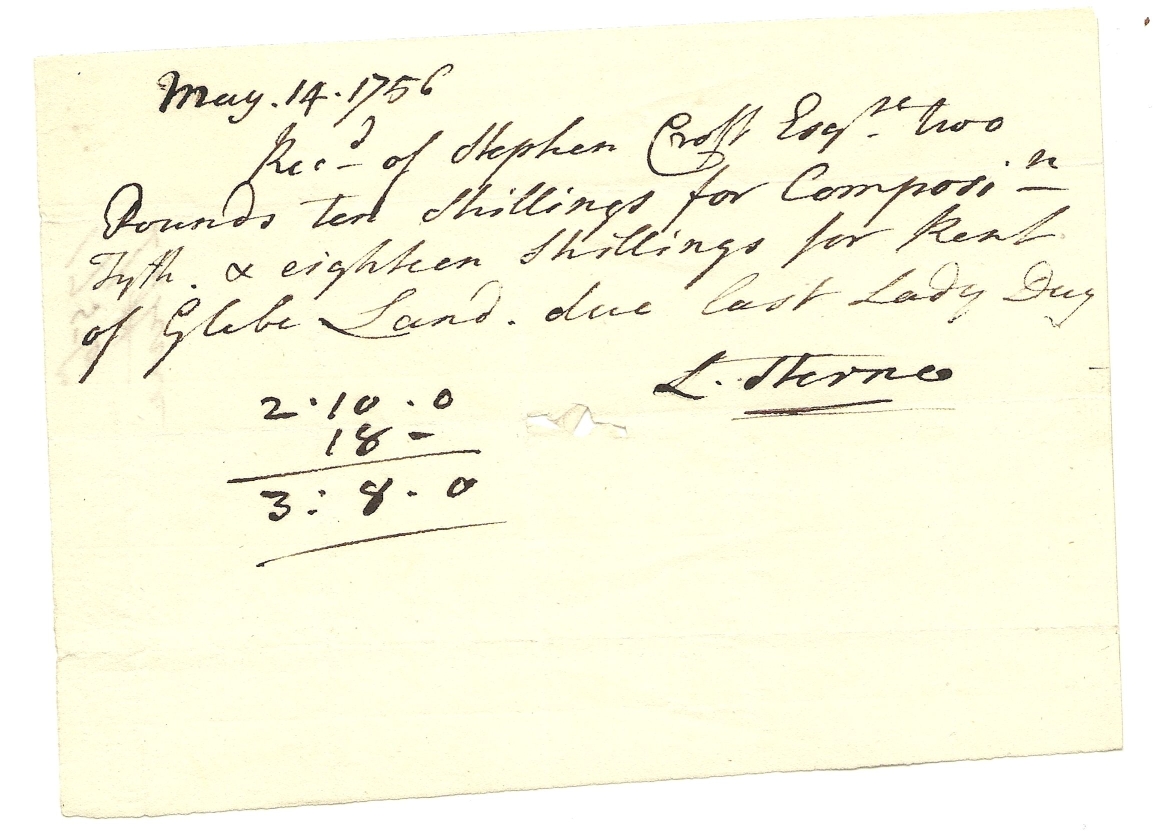 May. 14. 1756
Rec.d of Stephen Croft Esq.re two
Pounds ten Shillings for Composi.n
Tyth. & eighteen Shillings for Rent
of Glebe Land. due last Lady Day
L. Sterne
2 . 10 . 0
18 -
3 : 8 . 0